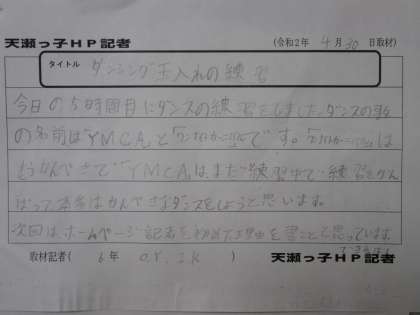 天瀬っ子HP記者 (令和2年 4月30日取材)
タイトル ダンシング玉入れの練習
今日の5時間目にダンスの練習をしました。ダンスの
の名前は「YMCA」と「」です。「」は
もうかんぺきで「YMCA」はまだ練習中で練習をがん
ばって本番はかんぺきなダンスをしようと思います。
次回は、ホームページ記者を初めた理由を書こうと思っています。
取材記者( 6年 O.Y, I.K ) 天瀬っ子HP記者